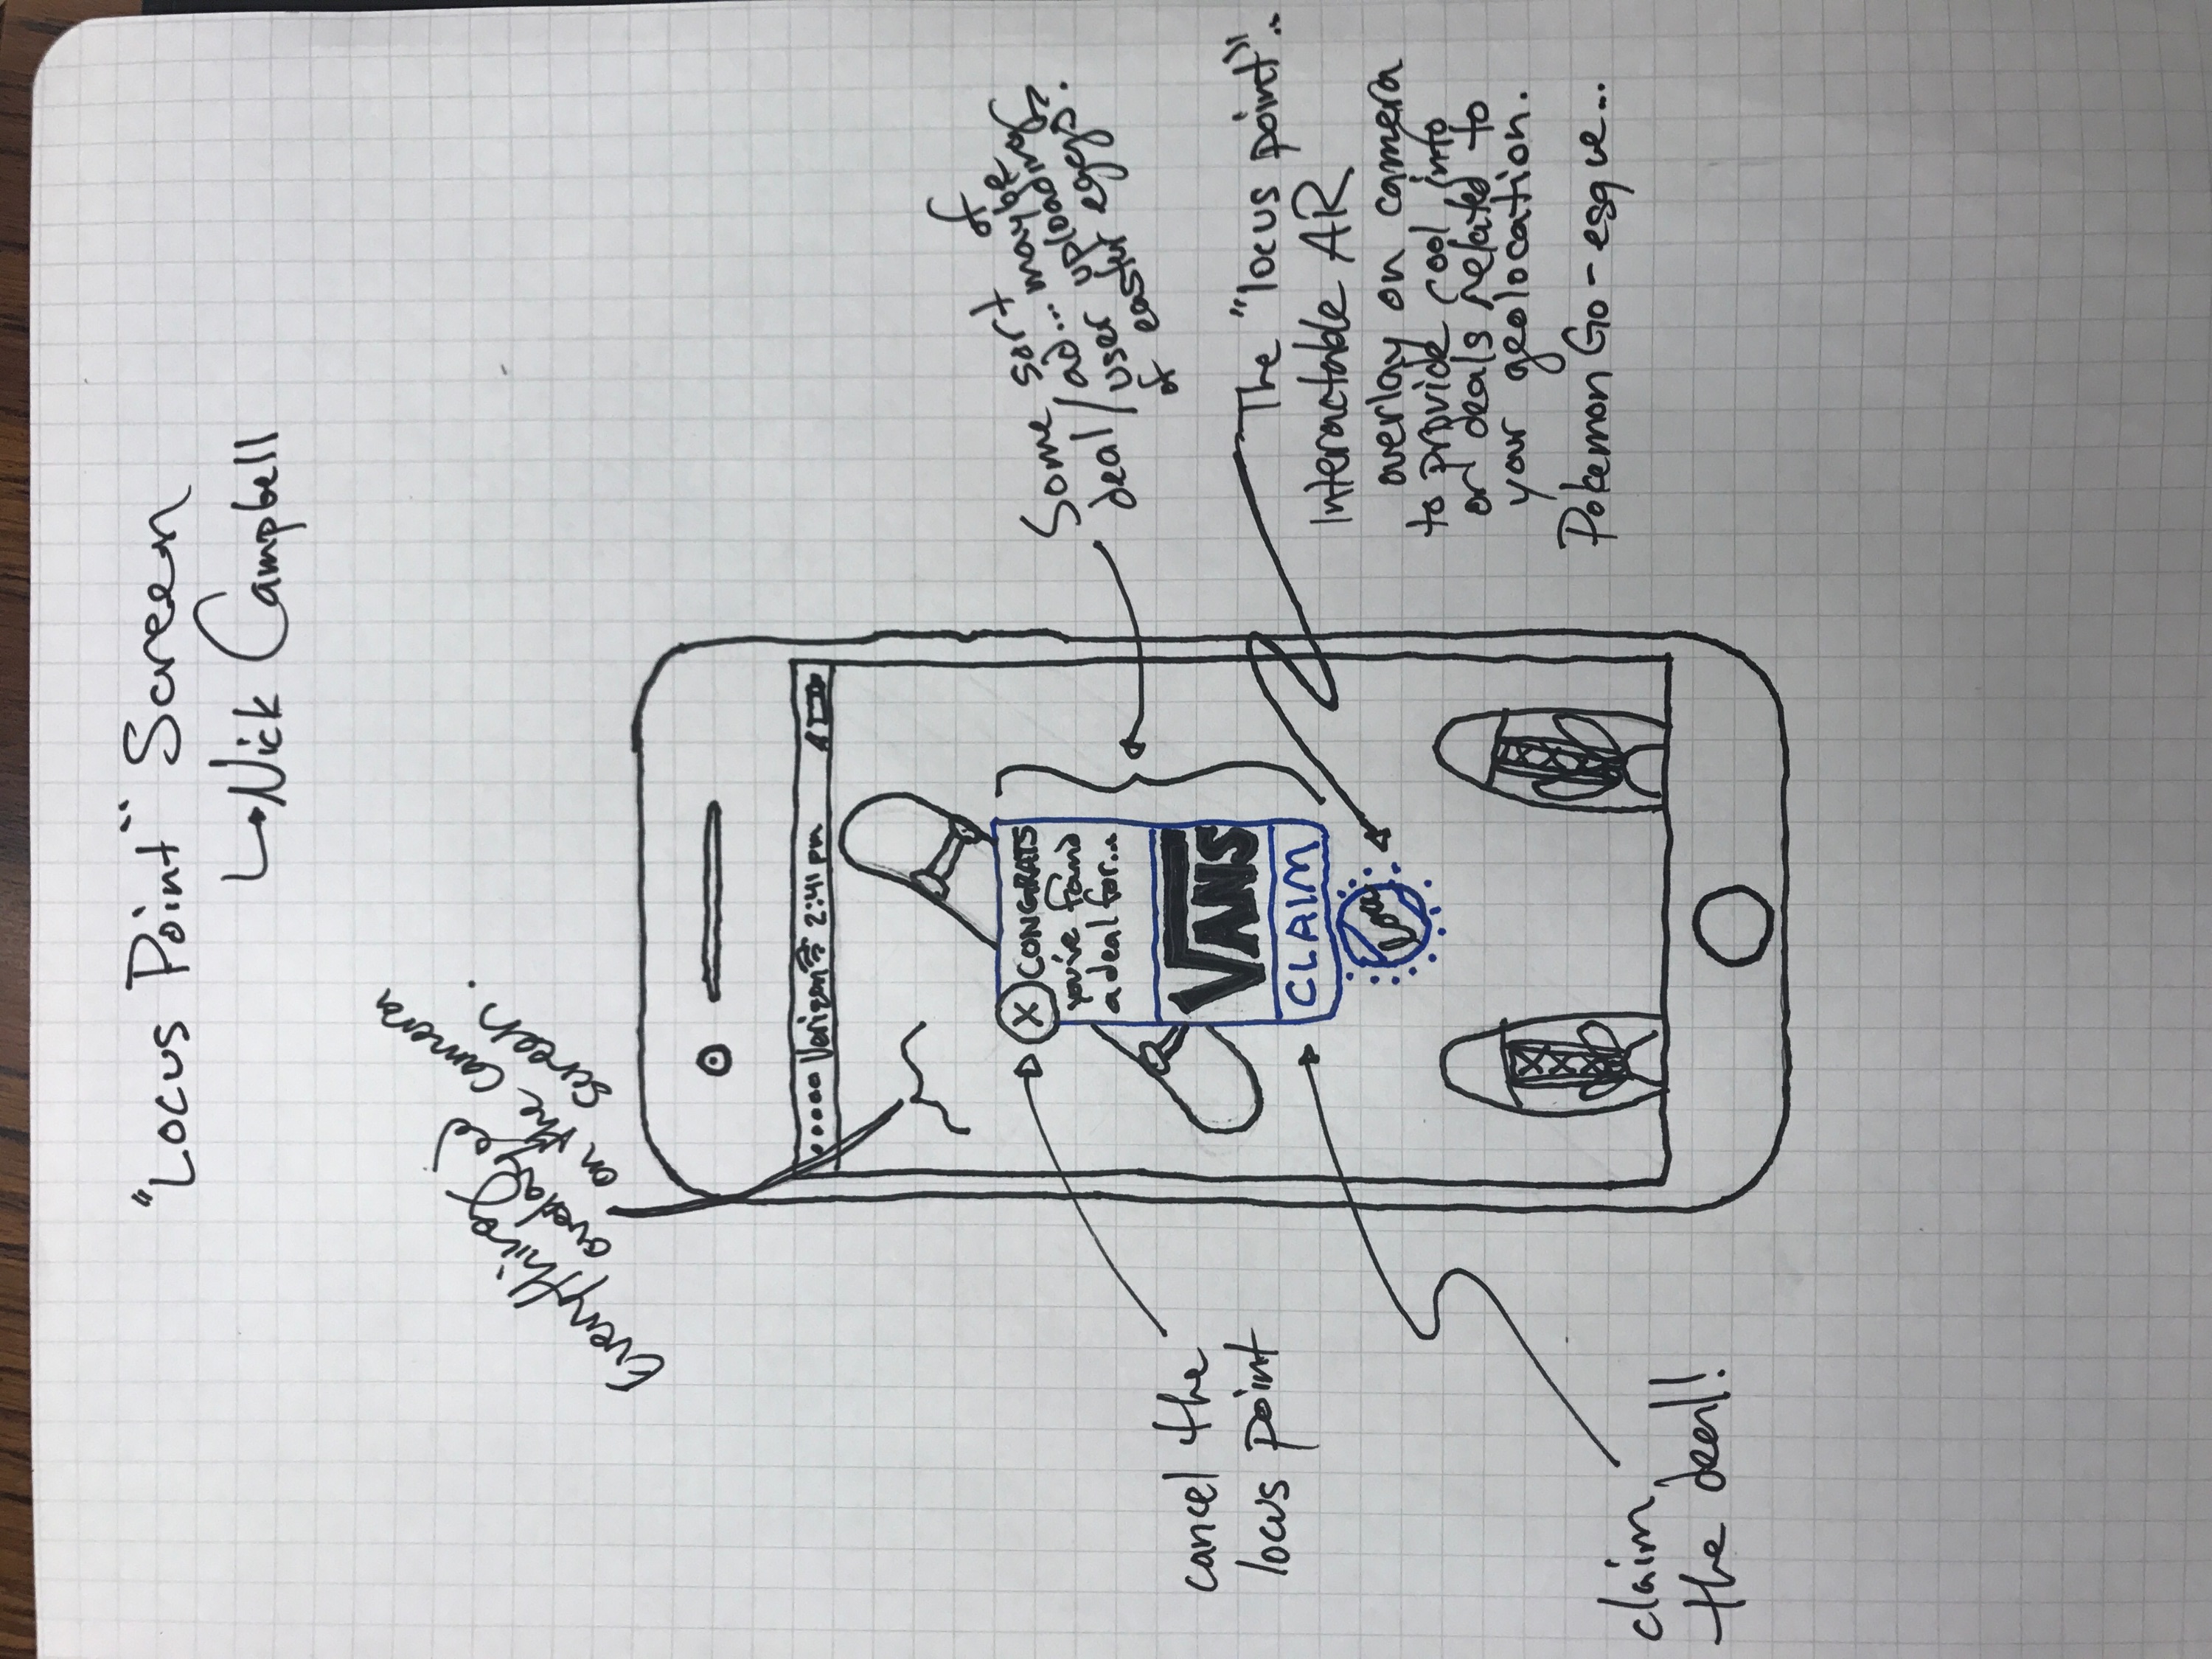 "Locus Point" Screen
Nick Campbell
Everything
overlayed
on the camera
screen.
Verizon 2:41 pm
X CONGRATS
you've found
a deal for...
VANS
CLAIM
cancel the
locus point
claim
the deal!
Some sort of
deal/ad... maybe
user uploading
of easter eggs?
The "locus point"..
Interactable AR
overlay on camera
to provide cool info
or deals related to
your geolocation.
Pokemon Go-esque...